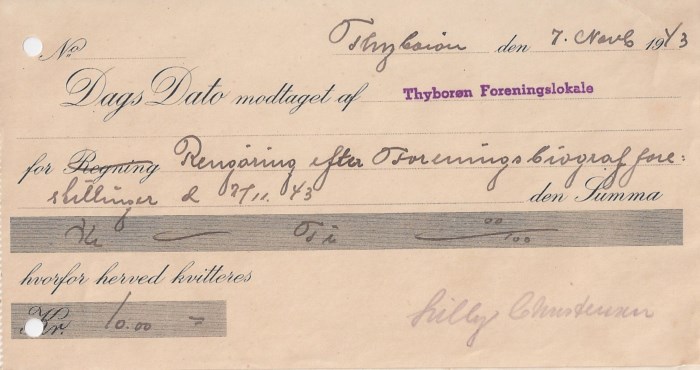 No Thyborøn den 7. Novb 1943
Dags Dato modtaget af Thyborøn Foreningslokale
for Regning Rengøring efter Foreningsbiograf fore=
stillinger d 7/11. 43 den Summa
Kr — Ti — 00/100
hvorfor herved kvitteres
Kr. 10.00 =
Lilly Christensen